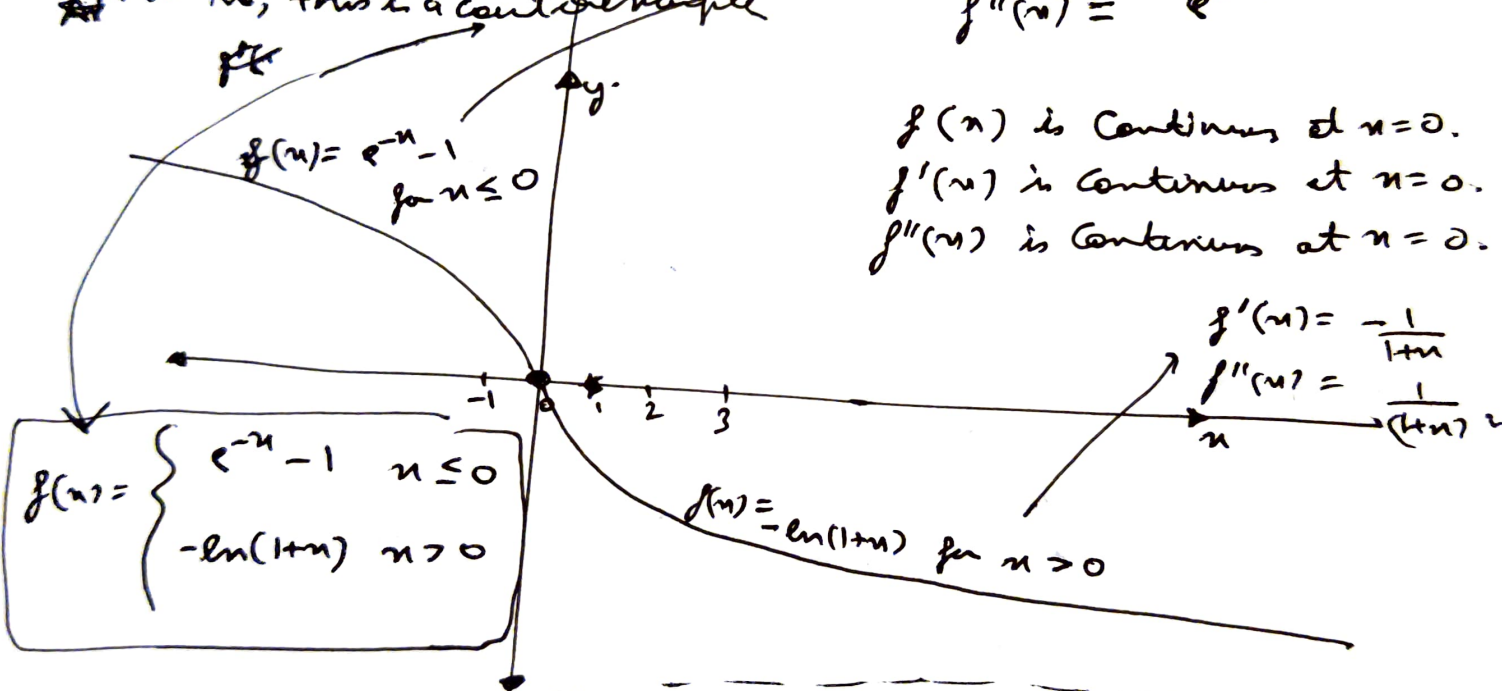 No, this is a counterexample
f''(x) = e
y.
f(x) = e^{-x} - 1
for x ≤ 0
f(x) is Continuous at x=0.
f'(x) is continuous at x=0.
f''(x) is Continuous at x=0.
f'(x) = -1/(1+x)
f''(x) = 1/(1+x)^2
-1 0 1 2 3
x
f(x) = { e^{-x} - 1 x ≤ 0
-ln(1+x) x > 0
f(x) =
-ln(1+x) for x > 0